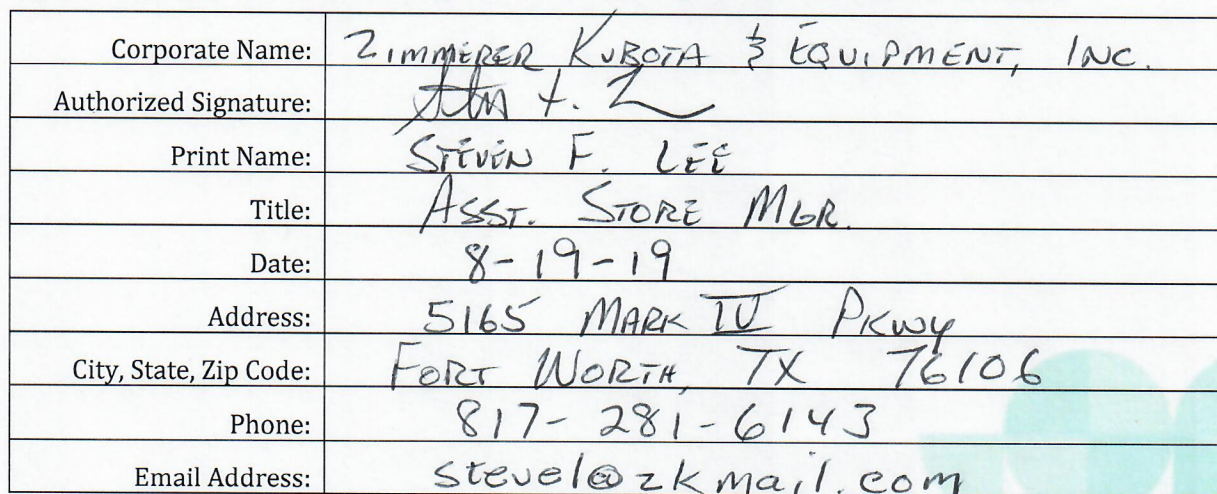 Corporate Name: ZIMMERER KUBOTA & EQUIPMENT, INC.
Authorized Signature:
Print Name: STEVEN F. LEE
Title: ASST. STORE MGR.
Date: 8-19-19
Address: 5165 MARK IV PKWY
City, State, Zip Code: FORT WORTH, TX 76106
Phone: 817-281-6143
Email Address: stevel@zkmail.com